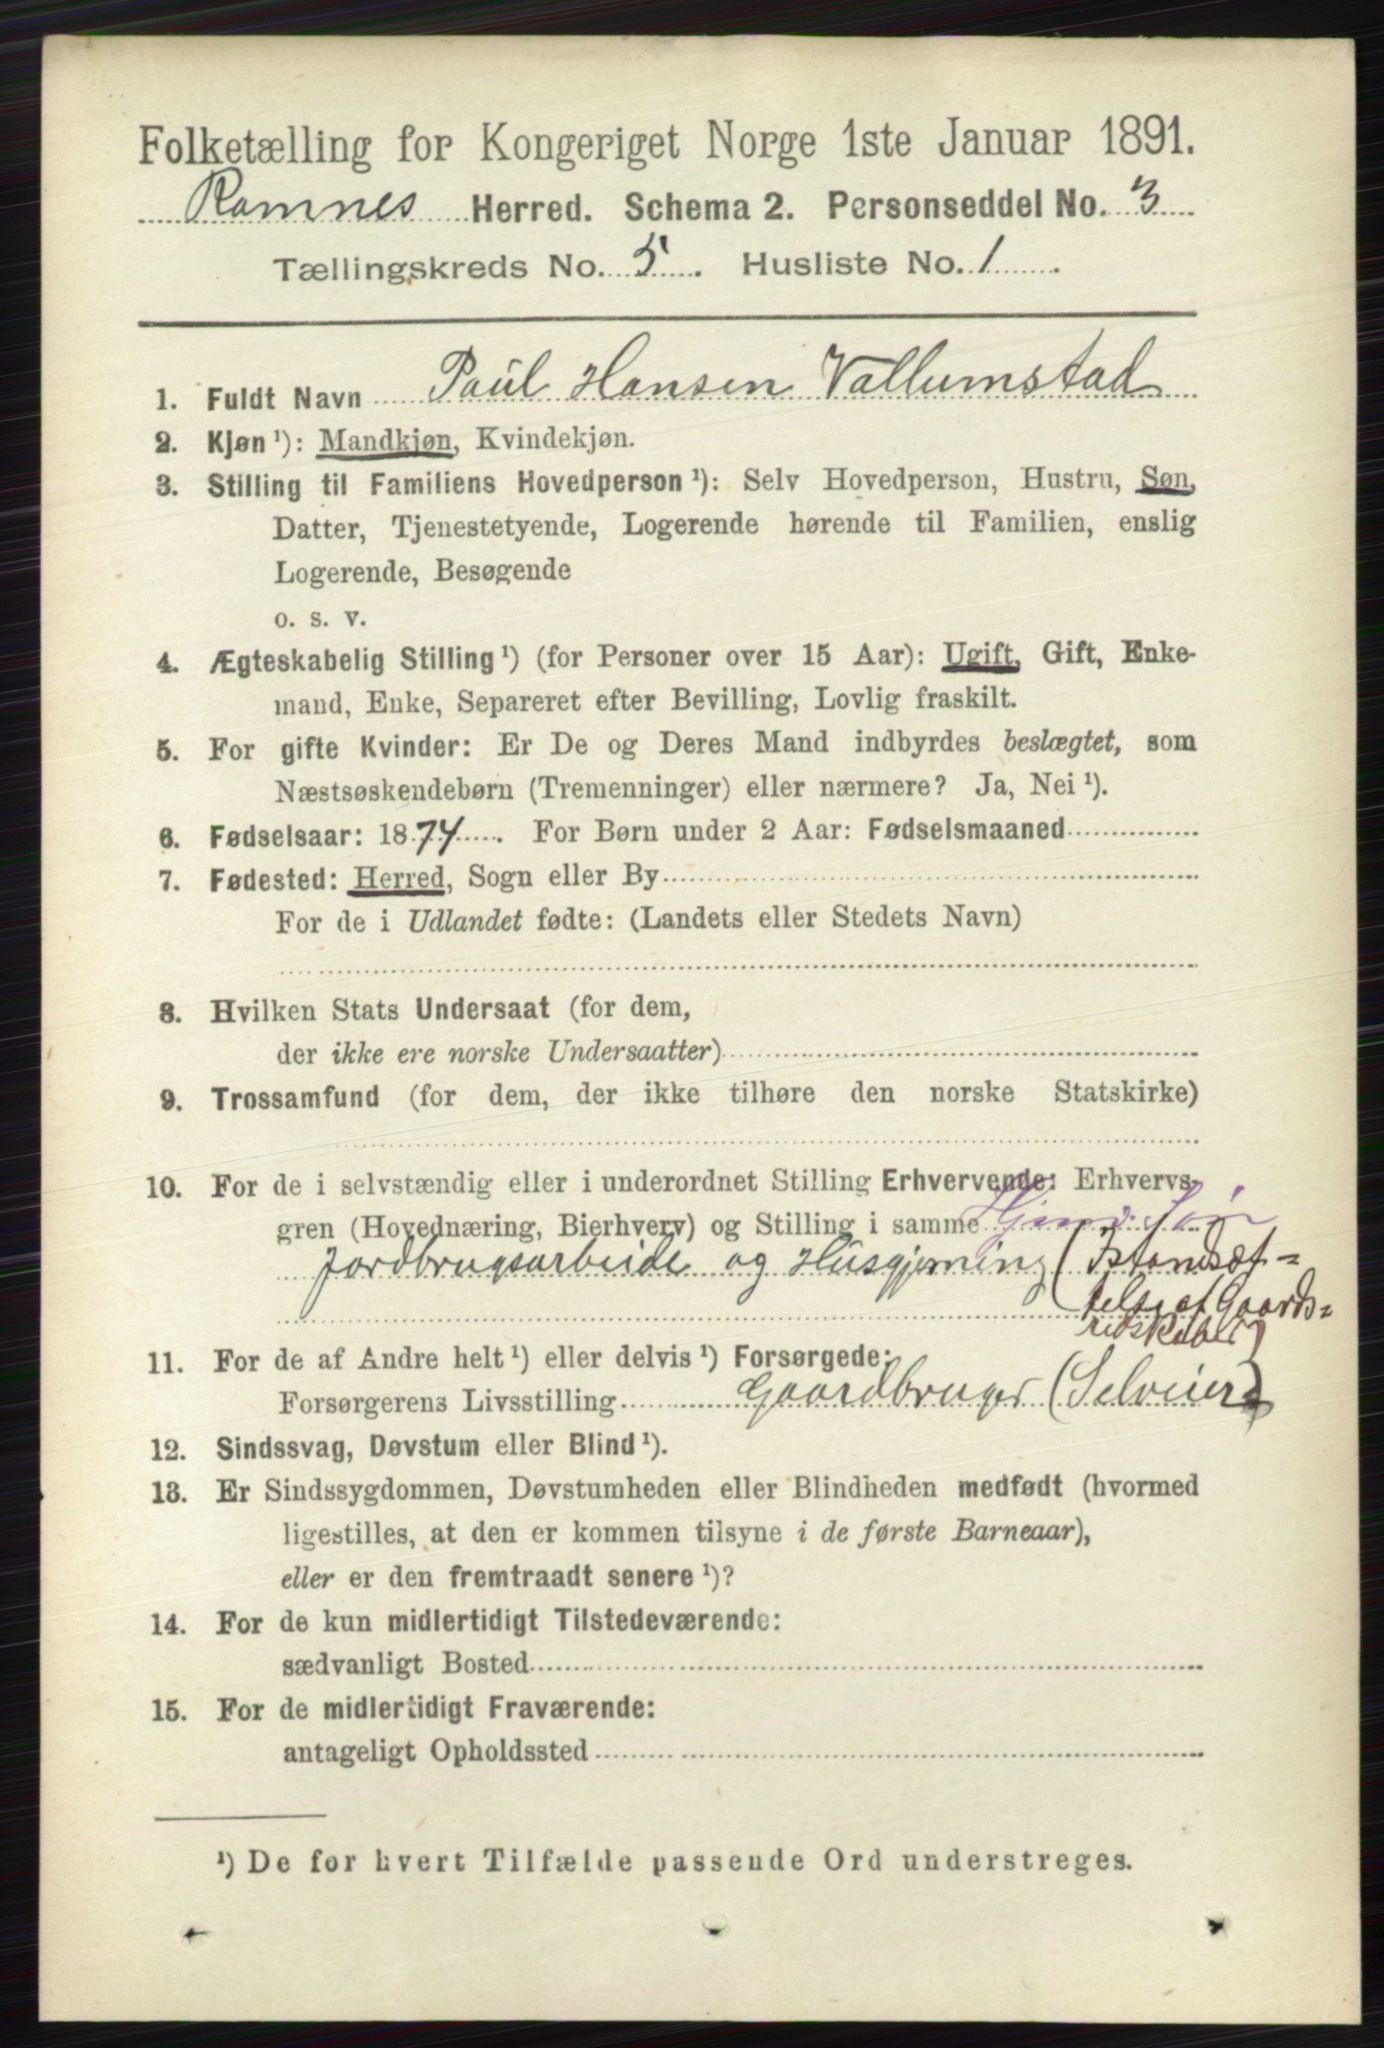 Folketælling for Kongeriget Norge 1ste Januar 1891.
Ramnes Herred. Schema 2. Personseddel No. 3
Tællingskreds No. 5. Husliste No. 1.
1. Fuldt Navn Paul Hansen Vallumstad
2. Kjøn ¹): Mandkjøn, Kvindekjøn.
3. Stilling til Familiens Hovedperson ¹): Selv Hovedperson, Hustru, Søn,
Datter, Tjenestetyende, Logerende hørende til Familien, enslig
Logerende, Besøgende
o. s. v.
4. Ægteskabelig Stilling ¹) (for Personer over 15 Aar): Ugift, Gift, Enke-
mand, Enke, Separeret efter Bevilling, Lovlig fraskilt.
5. For gifte Kvinder: Er De og Deres Mand indbyrdes beslægtet, som
Næstsøskendebørn (Tremenninger) eller nærmere? Ja, Nei ¹).
6. Fødselsaar: 1874. For Børn under 2 Aar: Fødselsmaaned
7. Fødested: Herred, Sogn eller By
For de i Udlandet fødte: (Landets eller Stedets Navn)
8. Hvilken Stats Undersaat (for dem,
der ikke ere norske Undersaatter)
9. Trossamfund (for dem, der ikke tilhøre den norske Statskirke)
10. For de i selvstændig eller i underordnet Stilling Erhvervende: Erhvervs-
gren (Hovednæring, Bierhverv) og Stilling i samme
Jordbrugsarbeide og Husgjerning (Istandsæt=
telse af Gaards=
redskaber)
11. For de af Andre helt ¹) eller delvis ¹) Forsørgede:
Forsørgerens Livsstilling Gaardbruger (Selveier)
12. Sindssvag, Døvstum eller Blind ¹).
13. Er Sindssygdommen, Døvstumheden eller Blindheden medfødt (hvormed
ligestilles, at den er kommen tilsyne i de første Barneaar),
eller er den fremtraadt senere ¹)?
14. For de kun midlertidigt Tilstedeværende:
sædvanligt Bosted
15. For de midlertidigt Fraværende:
antageligt Opholdssted
¹) De for hvert Tilfælde passende Ord understreges.